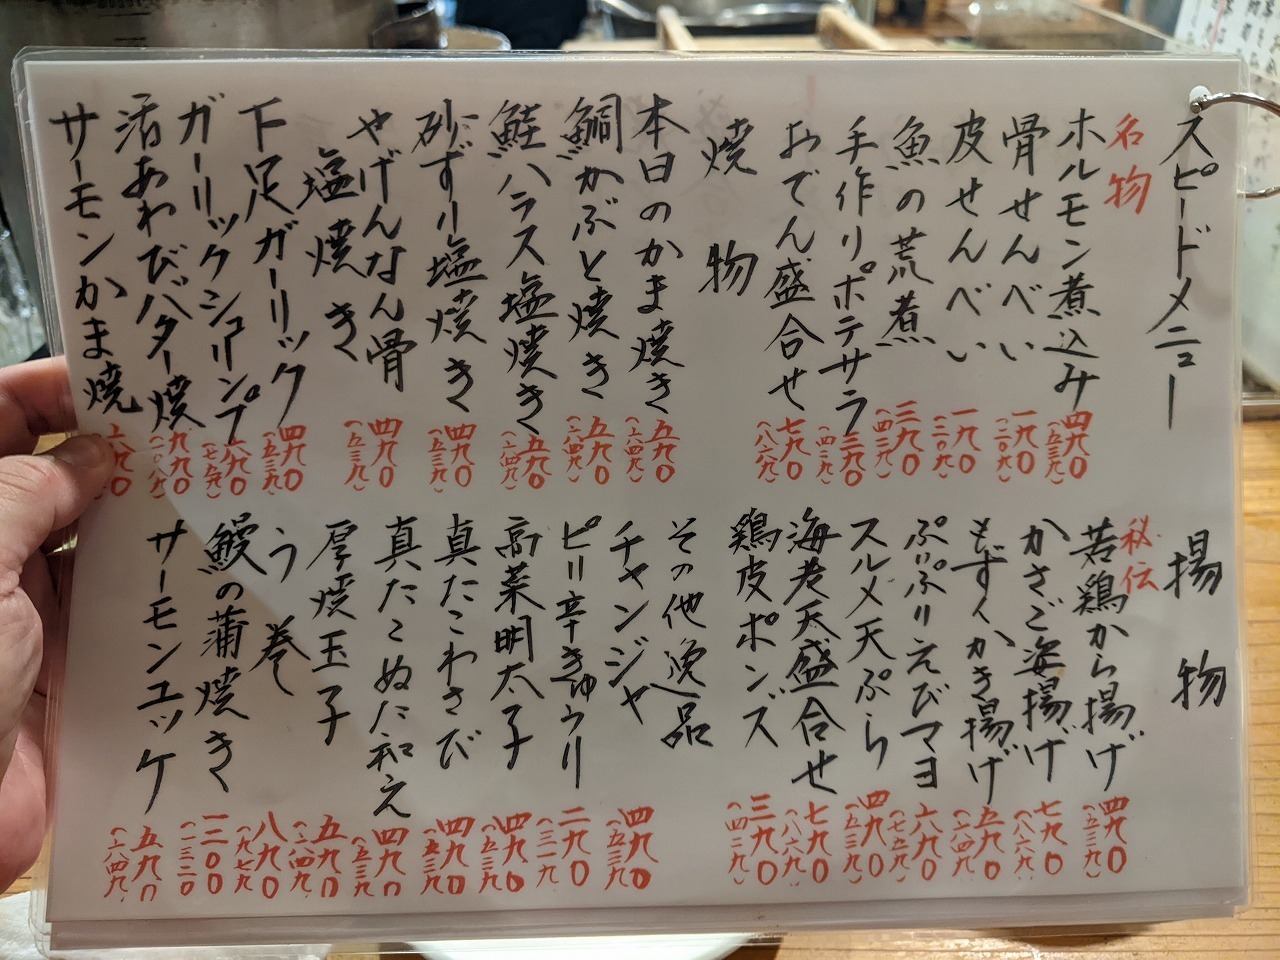 スピードメニュー
名物
ホルモン煮込み 四九〇 (五三九)
骨せんべい 一九〇 (二〇九)
皮せんべい 一九〇 (二〇九)
魚の荒煮 三九〇 (四二九)
手作りポテサラ 三九〇 (四二九)
おでん盛合せ 七九〇 (八六九)
焼物
本日のかま焼き 五九〇 (六四九)
鯛かぶと焼き 五九〇 (六四九)
鮭ハラス塩焼き 五九〇 (六四九)
砂ずり塩焼き 四九〇 (五三九)
やげんなん骨
塩焼き 四九〇 (五三九)
下足ガーリック 四九〇 (五三九)
ガーリックシュリンプ 六九〇 (七五九)
活あわびバター焼 九九〇 (一〇八九)
サーモンかま焼 六九〇
揚物
秘伝
若鶏から揚げ 四九〇 (五三九)
かさご姿揚げ 七九〇 (八六九)
もずくかき揚げ 五九〇 (六四九)
ぷりぷりえびマヨ 六九〇 (七五九)
スルメ天ぷら 四九〇 (五三九)
海老天盛合せ 七九〇 (八六九)
鶏皮ポンズ 三九〇 (四二九)
その他逸品
チャンジャ 四九〇 (五三九)
ピリ辛きゅうり 二九〇 (三一九)
高菜明太子 四九〇 (五三九)
真たこわさび 四九〇 (五三九)
真たこぬた和え 四九〇 (五三九)
厚焼玉子 五九〇 (六四九)
う巻 八九〇 (九七九)
鰻の蒲焼き 一二〇〇 (一三二〇)
サーモンユッケ 五九〇 (六四九)